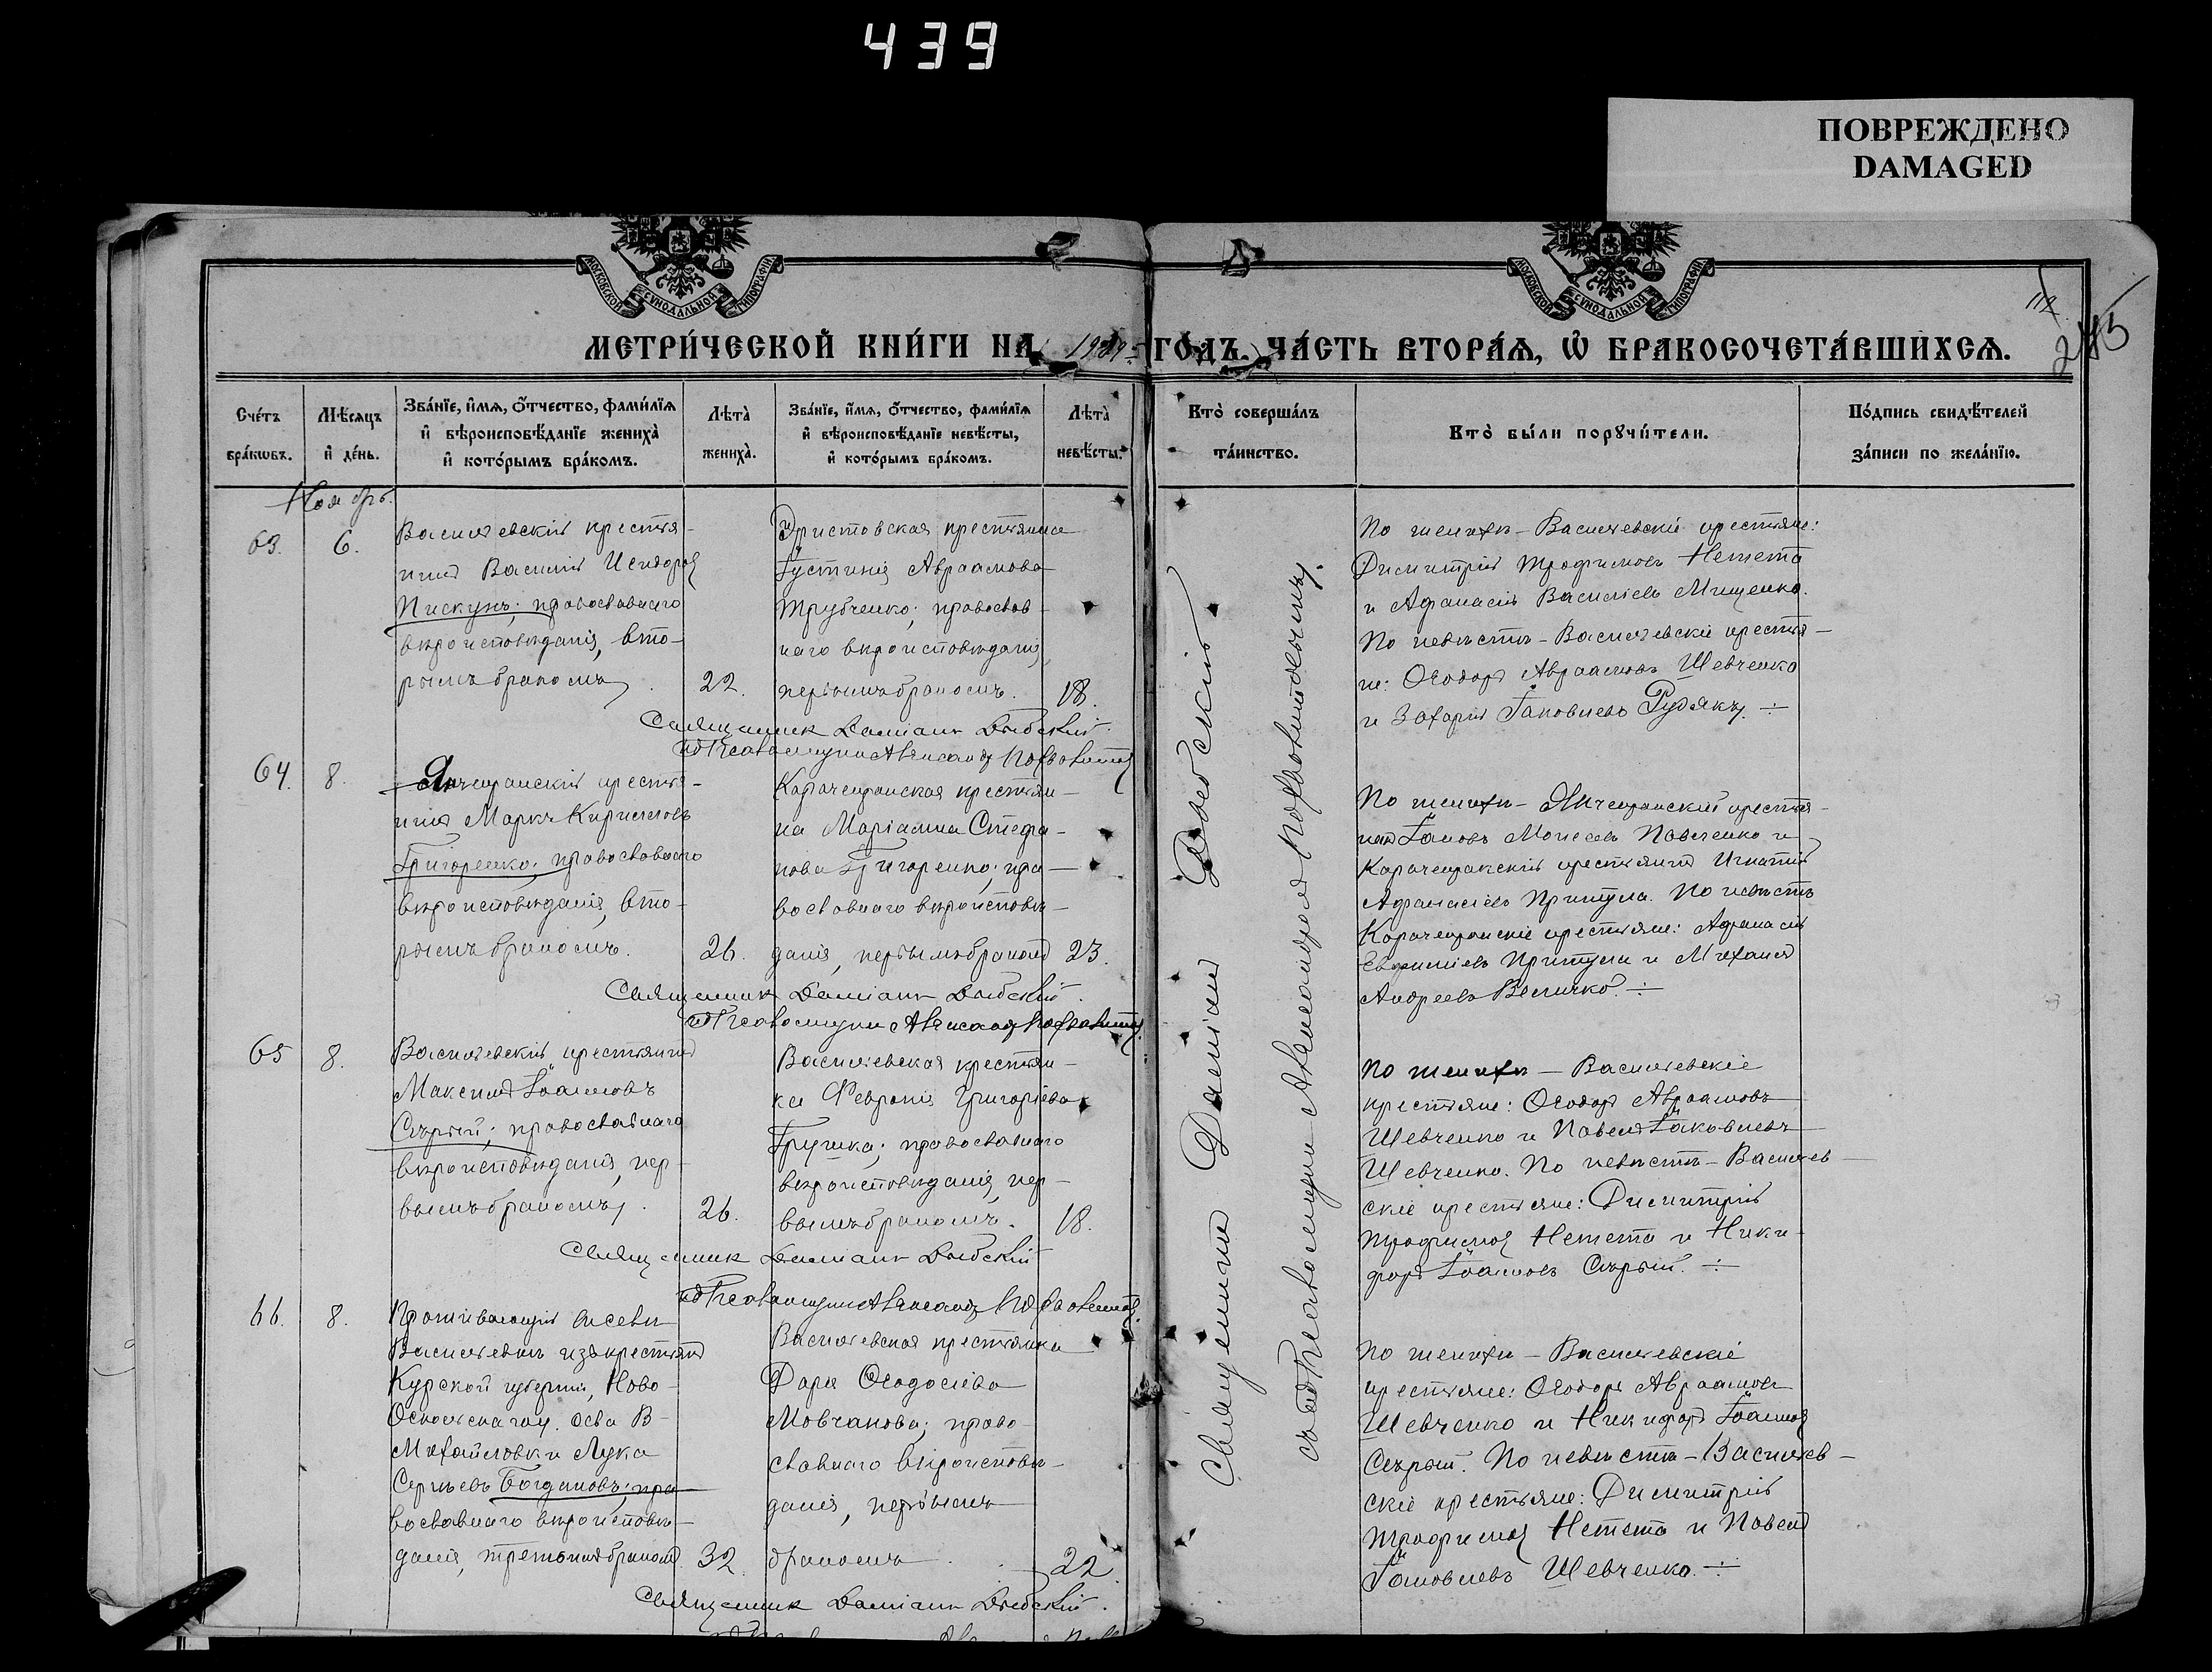 439
ПОВРЕЖДЕНО
DAMAGED
МОСКОВСКОЙ СѴНОДАЛЬНОЙ ТИПОГРАФІИ
МОСКОВСКОЙ СѴНОДАЛЬНОЙ ТИПОГРАФІИ
112
МЕТРИ́ЧЕСКОЙ КНИ́ГИ НА 1909 ГО́ДЪ. ЧА́СТЬ ВТОРА́Ѧ, Ѡ БРАКОСОЧЕТА́ВШИХСѦ.
Сче́тъ бра́кωвъ.
Мѣ́сѧцъ и҆ де́нь.
Зва́нїе, и҆́мѧ, ѻ҆́тчество, фами́лїѧ
и҆ вѣроисповѣ́данїе жениха̀
и҆ кото́рымъ бра́комъ.
Лѣта̀ жениха̀.
Зва́нїе, и҆́мѧ, ѻ҆́тчество, фами́лїѧ
и҆ вѣроисповѣ́данїе невѣ́сты,
и҆ кото́рымъ бра́комъ.
Лѣта̀ невѣ́сты.
Кто̀ соверша́лъ та́инство.
Кто̀ бы́ли порꙋчи́тели.
По́дпись свидѣ́телей
за́писи по жела́нїю.
Ноябрь.
63.
6.
Василевскій крестья-
нинъ Василій Исидоровъ
Пискунъ; православнаго
вѣроисповѣданія, вто-
рымъ бракомъ.
22.
крестьянка
Іустинія Авраамова
Трубченко; православ-
наго вѣроисповѣданія,
первымъ бракомъ.
18.
По женихѣ - Василевскіе крестьяне:
Димитрій Трофимовъ Нетета
и Афанасій Василіевъ Мищенко.
По невѣстѣ - Василевскіе крестья-
не: Ѳеодоръ Авраамовъ Шевченко
и Захарій Іаковлевъ Рудякъ.
Священникъ Даміанъ
Псаломщикъ Александръ
64.
8.
крестья-
нинъ Маркъ Кирилловъ
Григоренко; православнаго
вѣроисповѣданія, вто-
рымъ бракомъ.
26.
крестьян-
ка Маріамна Стефа-
нова Григоренко; пра-
вославнаго вѣроисповѣ-
данія, первымъ бракомъ
23.
По женихѣ - крестья-
нинъ Іаковъ Моисеевъ Павленко и
крестьянинъ Игнатій
Афанасіевъ Притула. По невѣстѣ
крестьяне: Афанасій
Евфиміевъ Притула и Михаилъ
Андреевъ Величко.
Священникъ Даміанъ
Псаломщикъ Александръ
65
8.
Василевскій крестьянинъ
Максимъ Іоанновъ
Сѣрый; православнаго
вѣроисповѣданія, пер-
вымъ бракомъ.
26.
Василевская крестьян-
ка Февронія Григоріева
Грушка; православнаго
вѣроисповѣданія, пер-
вымъ бракомъ.
18.
По женихѣ - Василевскіе
крестьяне: Ѳеодоръ Авраамовъ
Шевченко и Павелъ Іаковлевъ
Шевченко. По невѣстѣ - Василев-
скіе крестьяне: Димитрій
Трофимовъ Нетета и Ники-
форъ Іоанновъ Сѣрый.
Священникъ Даміанъ
Псаломщикъ Александръ
66.
8.
Проживающій въ селѣ
Василевкѣ изъ крестьянъ
Курской губерніи, Ново-
Оскольскаго у.
Михайловки Лука
Сергѣевъ Богдановъ; пра-
вославнаго вѣроисповѣ-
данія, третьимъ бракомъ.
32.
Василевская крестьянка
Дарія Ѳеодосіева
Мовчанова; право-
славнаго вѣроисповѣ-
данія, первымъ
бракомъ.
22.
По женихѣ - Василевскіе
крестьяне: Ѳеодоръ Авраамовъ
Шевченко и Никифоръ Іоанновъ
Сѣрый. По невѣстѣ - Василев-
скіе крестьяне: Димитрій
Трофимовъ Нетета и Павелъ
Іаковлевъ Шевченко.
Священникъ Даміанъ
Священникъ Даміанъ
псаломщикомъ Александромъ